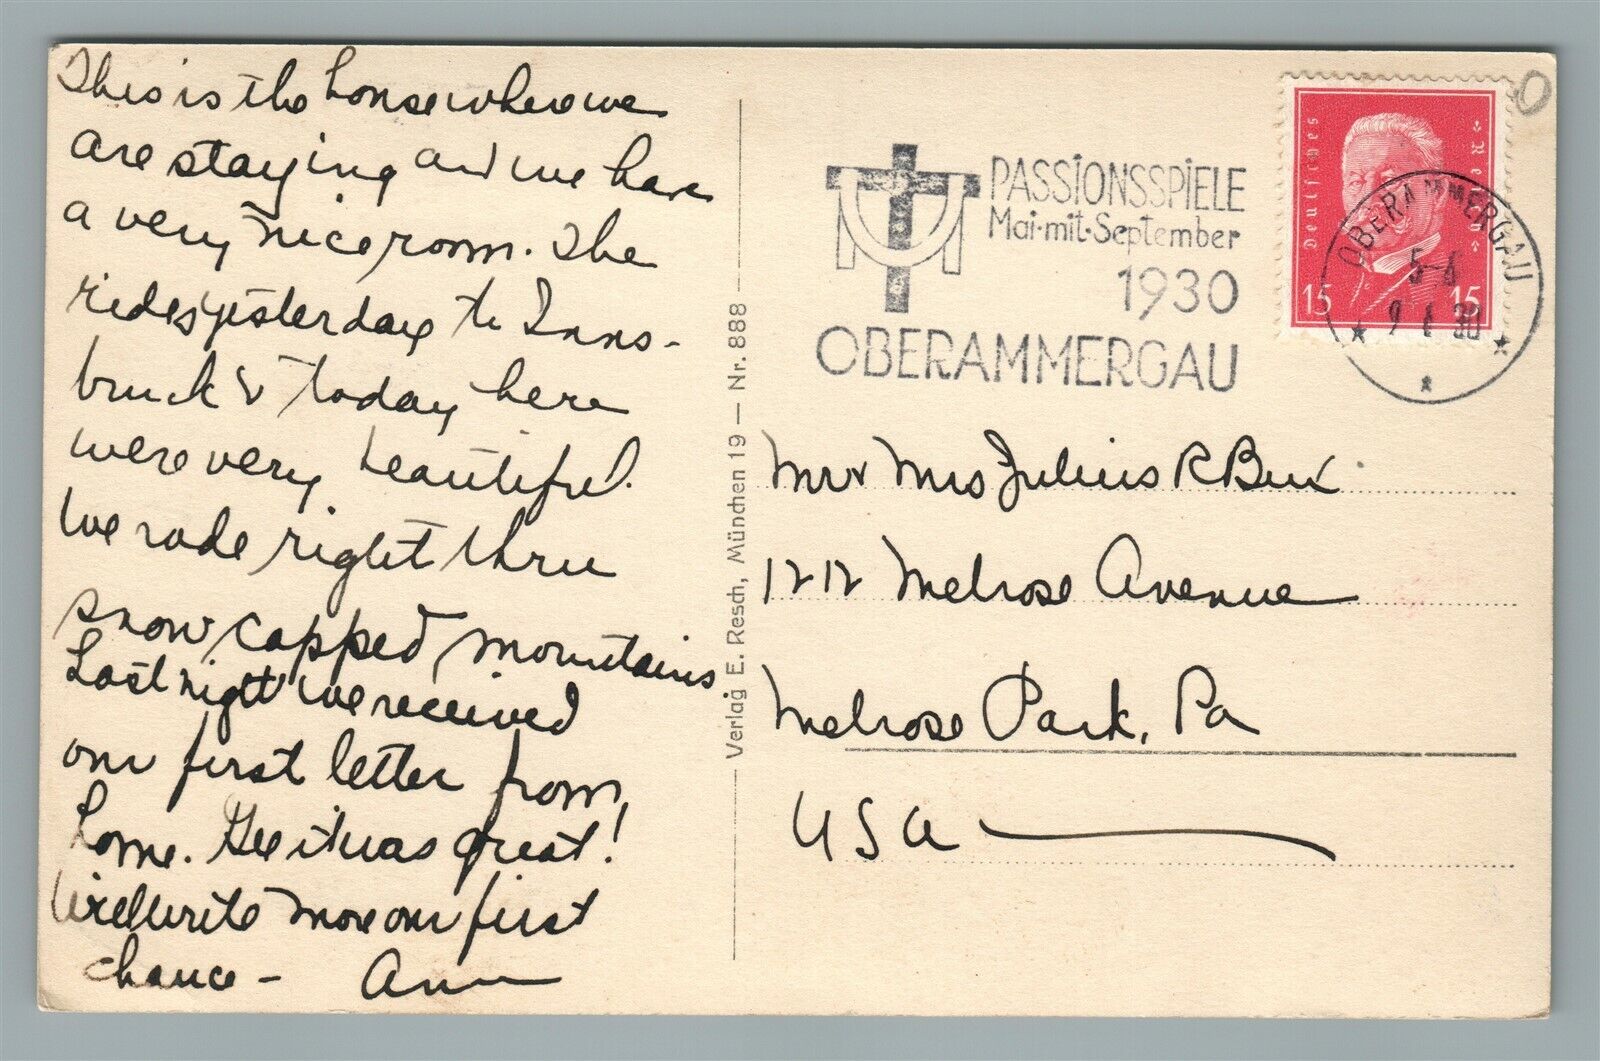 This is the house where we
are staying and we have
a very nice room. The
rides yesterday to Inns-
bruck & today here
were very beautiful.
We rode right thru
snow capped mountains
Last night we received
our first letter from
home. Gee it was great!
Will write more our first
chance - Ann
Verlag E. Resch, München 19 — Nr. 888
PASSIONSSPIELE
Mai-mit-September
1930
OBERAMMERGAU
Deutsches Reich
15 15
OBERAMMERGAU
30
Mr & Mrs Julius R
1212 Melrose Avenue
Melrose Park, Pa
USA